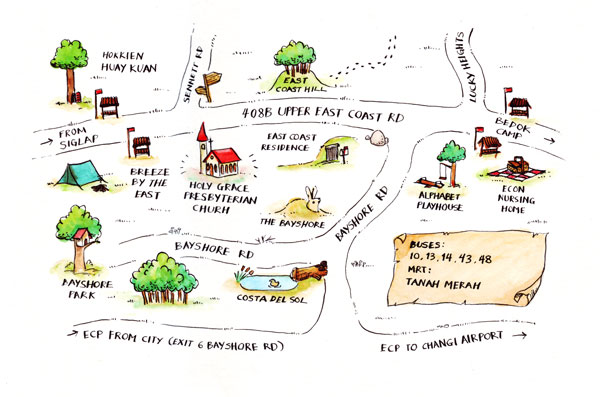 HOKKIEN
HUAY KUAN
SENNETT RD
EAST
COAST HILL
LUCKY HEIGHTS
408B UPPER EAST COAST RD
→ FROM
SIGLAP
BEDOK
CAMP
BREEZE
BY THE
EAST
HOLY GRACE
PRESBYTERIAN
CHURH
EAST COAST
RESIDENCE
THE BAYSHORE
BAYSHORE RD
ALPHABET
PLAYHOUSE
ECON
NURSING
HOME
BAYSHORE RD
BAYSHORE
PARK
COSTA DEL SOL
BUSES:
10, 13, 14, 43, 48
MRT:
TANAH MERAH
→ ECP FROM CITY (EXIT 6 BAYSHORE RD)
ECP TO CHANGI AIRPORT →